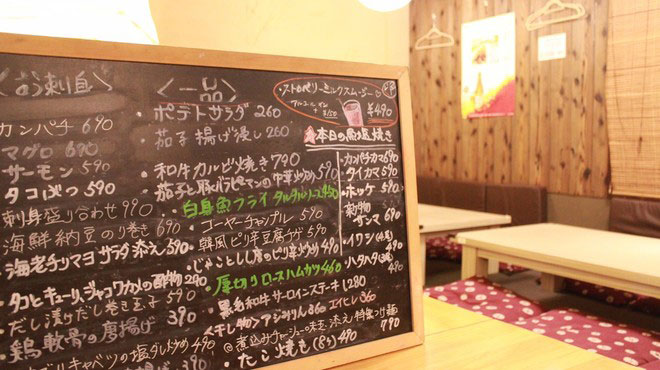 お刺身
カンパチ 690
マグロ 690
サーモン 590
タコぶつ 590
刺身盛り合わせ 990
海鮮納豆のり巻き 690
海老チリマヨサラダ添え 590
タコとキューリ、ジャコワカメの酢物 290
だし漬けだし巻き玉子 590
鶏軟骨の唐揚げ 390
キャベツの塩ダレ炒め 490
<一品>
ポテトサラダ 260
茄子揚げ浸し 260
和牛カルビ焼き 790
茄子と豚バラピーマンの中華炒め 590
白身魚フライタルタルソース 450
ゴーヤーチャンプル 590
韓風ピリ辛豆腐チゲ 590
じゃことしし唐のピリ辛炒め 490
厚切りロースハムカツ 460
黒毛和牛サーロインステーキ 1280
<干し物> アジみりん 360 エイヒレ 360
煮込みチャーシュー 味玉 添え 特製つけ麺 790
たこ焼き(8ヶ) 490
ストロベリーミルクスムージー
アルコールイン +150
¥490
本日の魚塩焼き
カンパチカマ 690
タイカマ 590
ホッケ 590
サンマ 690
イワシ 490
ハタハタ 490